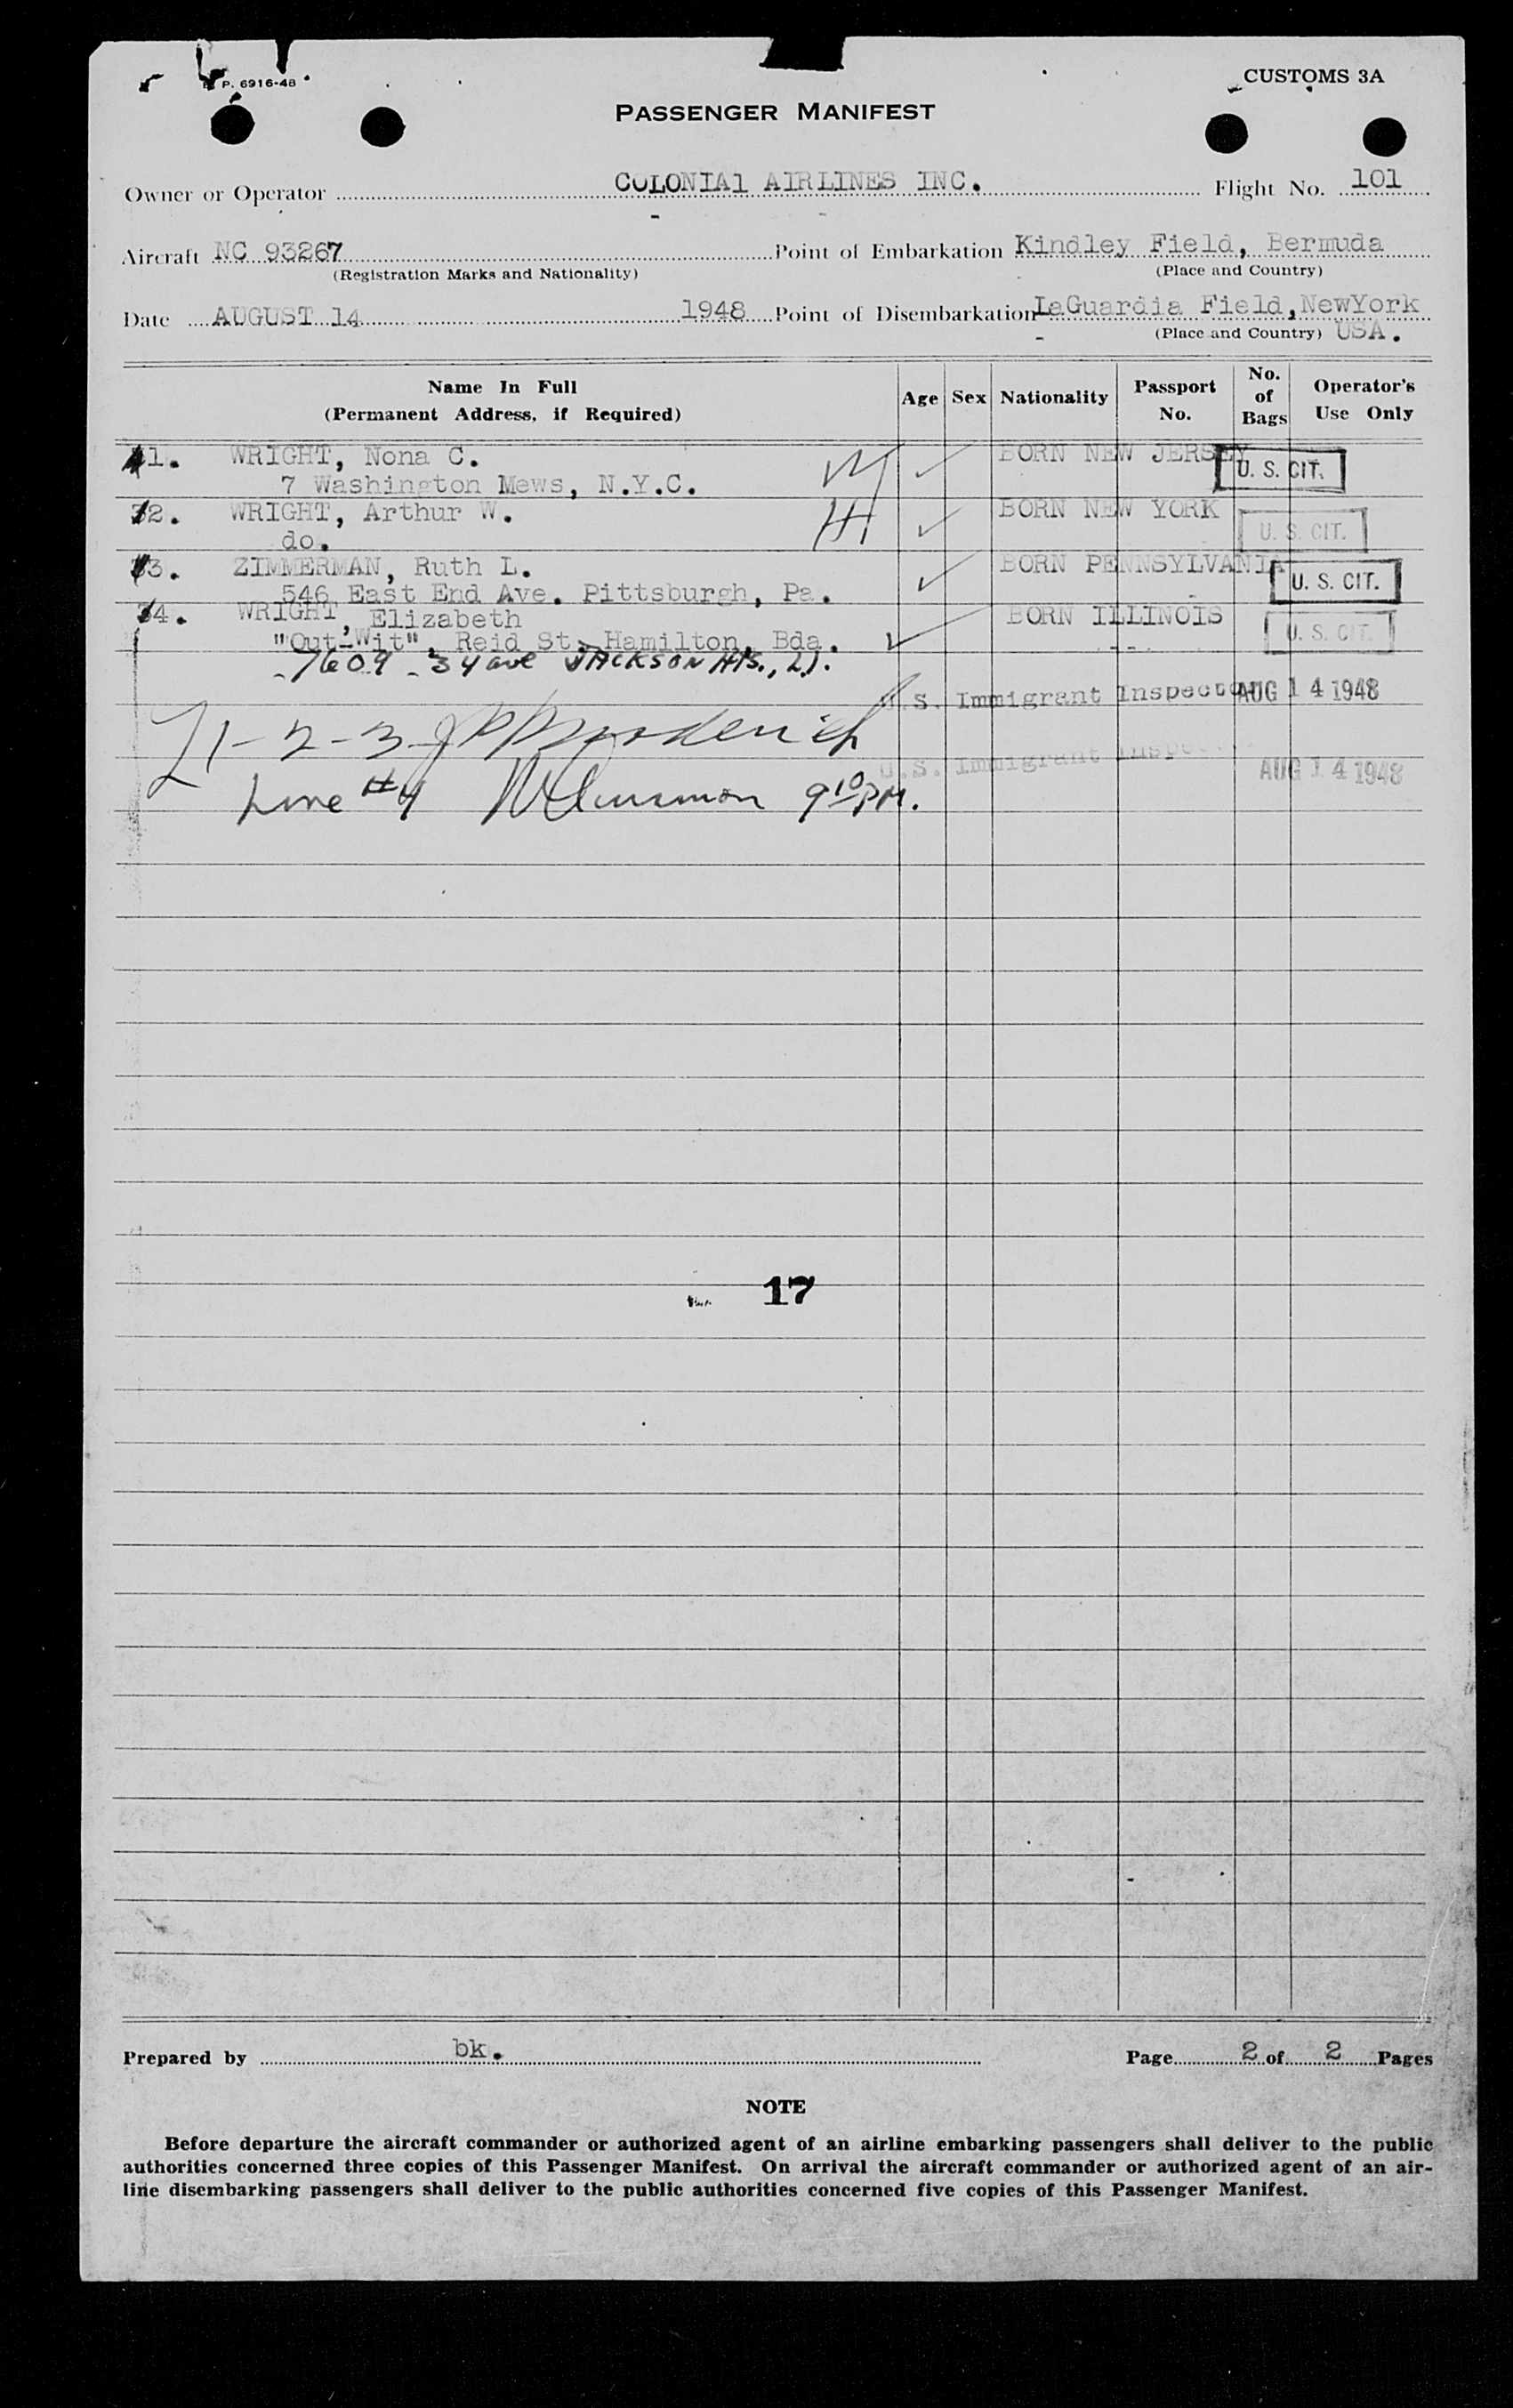 P. 6916-48
CUSTOMS 3A
PASSENGER MANIFEST
Owner or Operator COLONIAl AIRLINES INC. Flight No. 101
Aircraft NC 93267 Point of Embarkation Kindley Field, Bermuda
(Registration Marks and Nationality) (Place and Country)
Date AUGUST 14 1948 Point of Disembarkation LaGuardia Field, NewYork
(Place and Country) USA.
Name In Full (Permanent Address, if Required) Age Sex Nationality Passport No. No. of Bags Operator's Use Only
1. WRIGHT, Nona C. BORN NEW JERSEY U. S. CIT.
7 Washington Mews, N.Y.C.
2. WRIGHT, Arthur W. BORN NEW YORK U. S. CIT.
do.
3. ZIMMERMAN, Ruth L. BORN PENNSYLVANIA U. S. CIT.
546 East End Ave. Pittsburgh, Pa.
4. WRIGHT, Elizabeth BORN ILLINOIS U. S. CIT.
"Out-Wit", Reid St. Hamilton, Bda.
7609 - 34 ave JACKSON HTS., L.I.
U.S. Immigrant Inspector AUG 14 1948
1-2-3
U.S. Immigrant Inspector AUG 14 1948
Line #4 9 10 PM.
17
Prepared by bk. Page 2 of 2 Pages
NOTE
Before departure the aircraft commander or authorized agent of an airline embarking passengers shall deliver to the public
authorities concerned three copies of this Passenger Manifest. On arrival the aircraft commander or authorized agent of an air-
line disembarking passengers shall deliver to the public authorities concerned five copies of this Passenger Manifest.